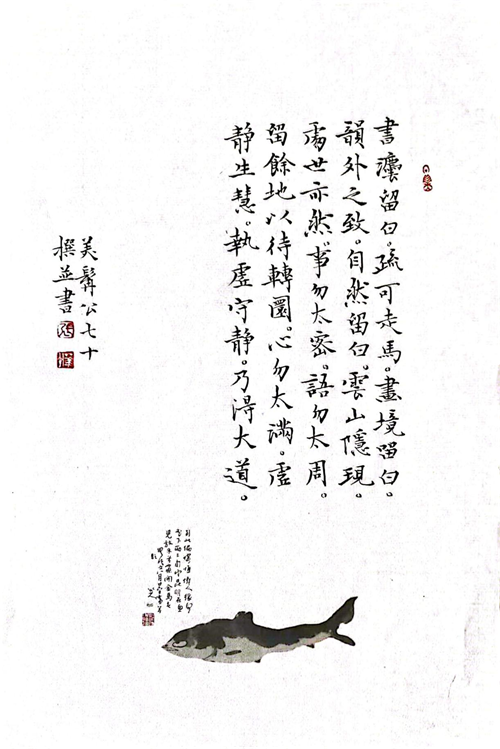 書瀼留白。疏可走馬。畫境留白。
韻外之致。自然留白。雲山隱現。
處世亦然。事勿太密。語勿太周。
留餘地以待轉圜。心勿太滿。虛
静生慧。執虛守静。乃得大道。
美髯公七十
撰並書